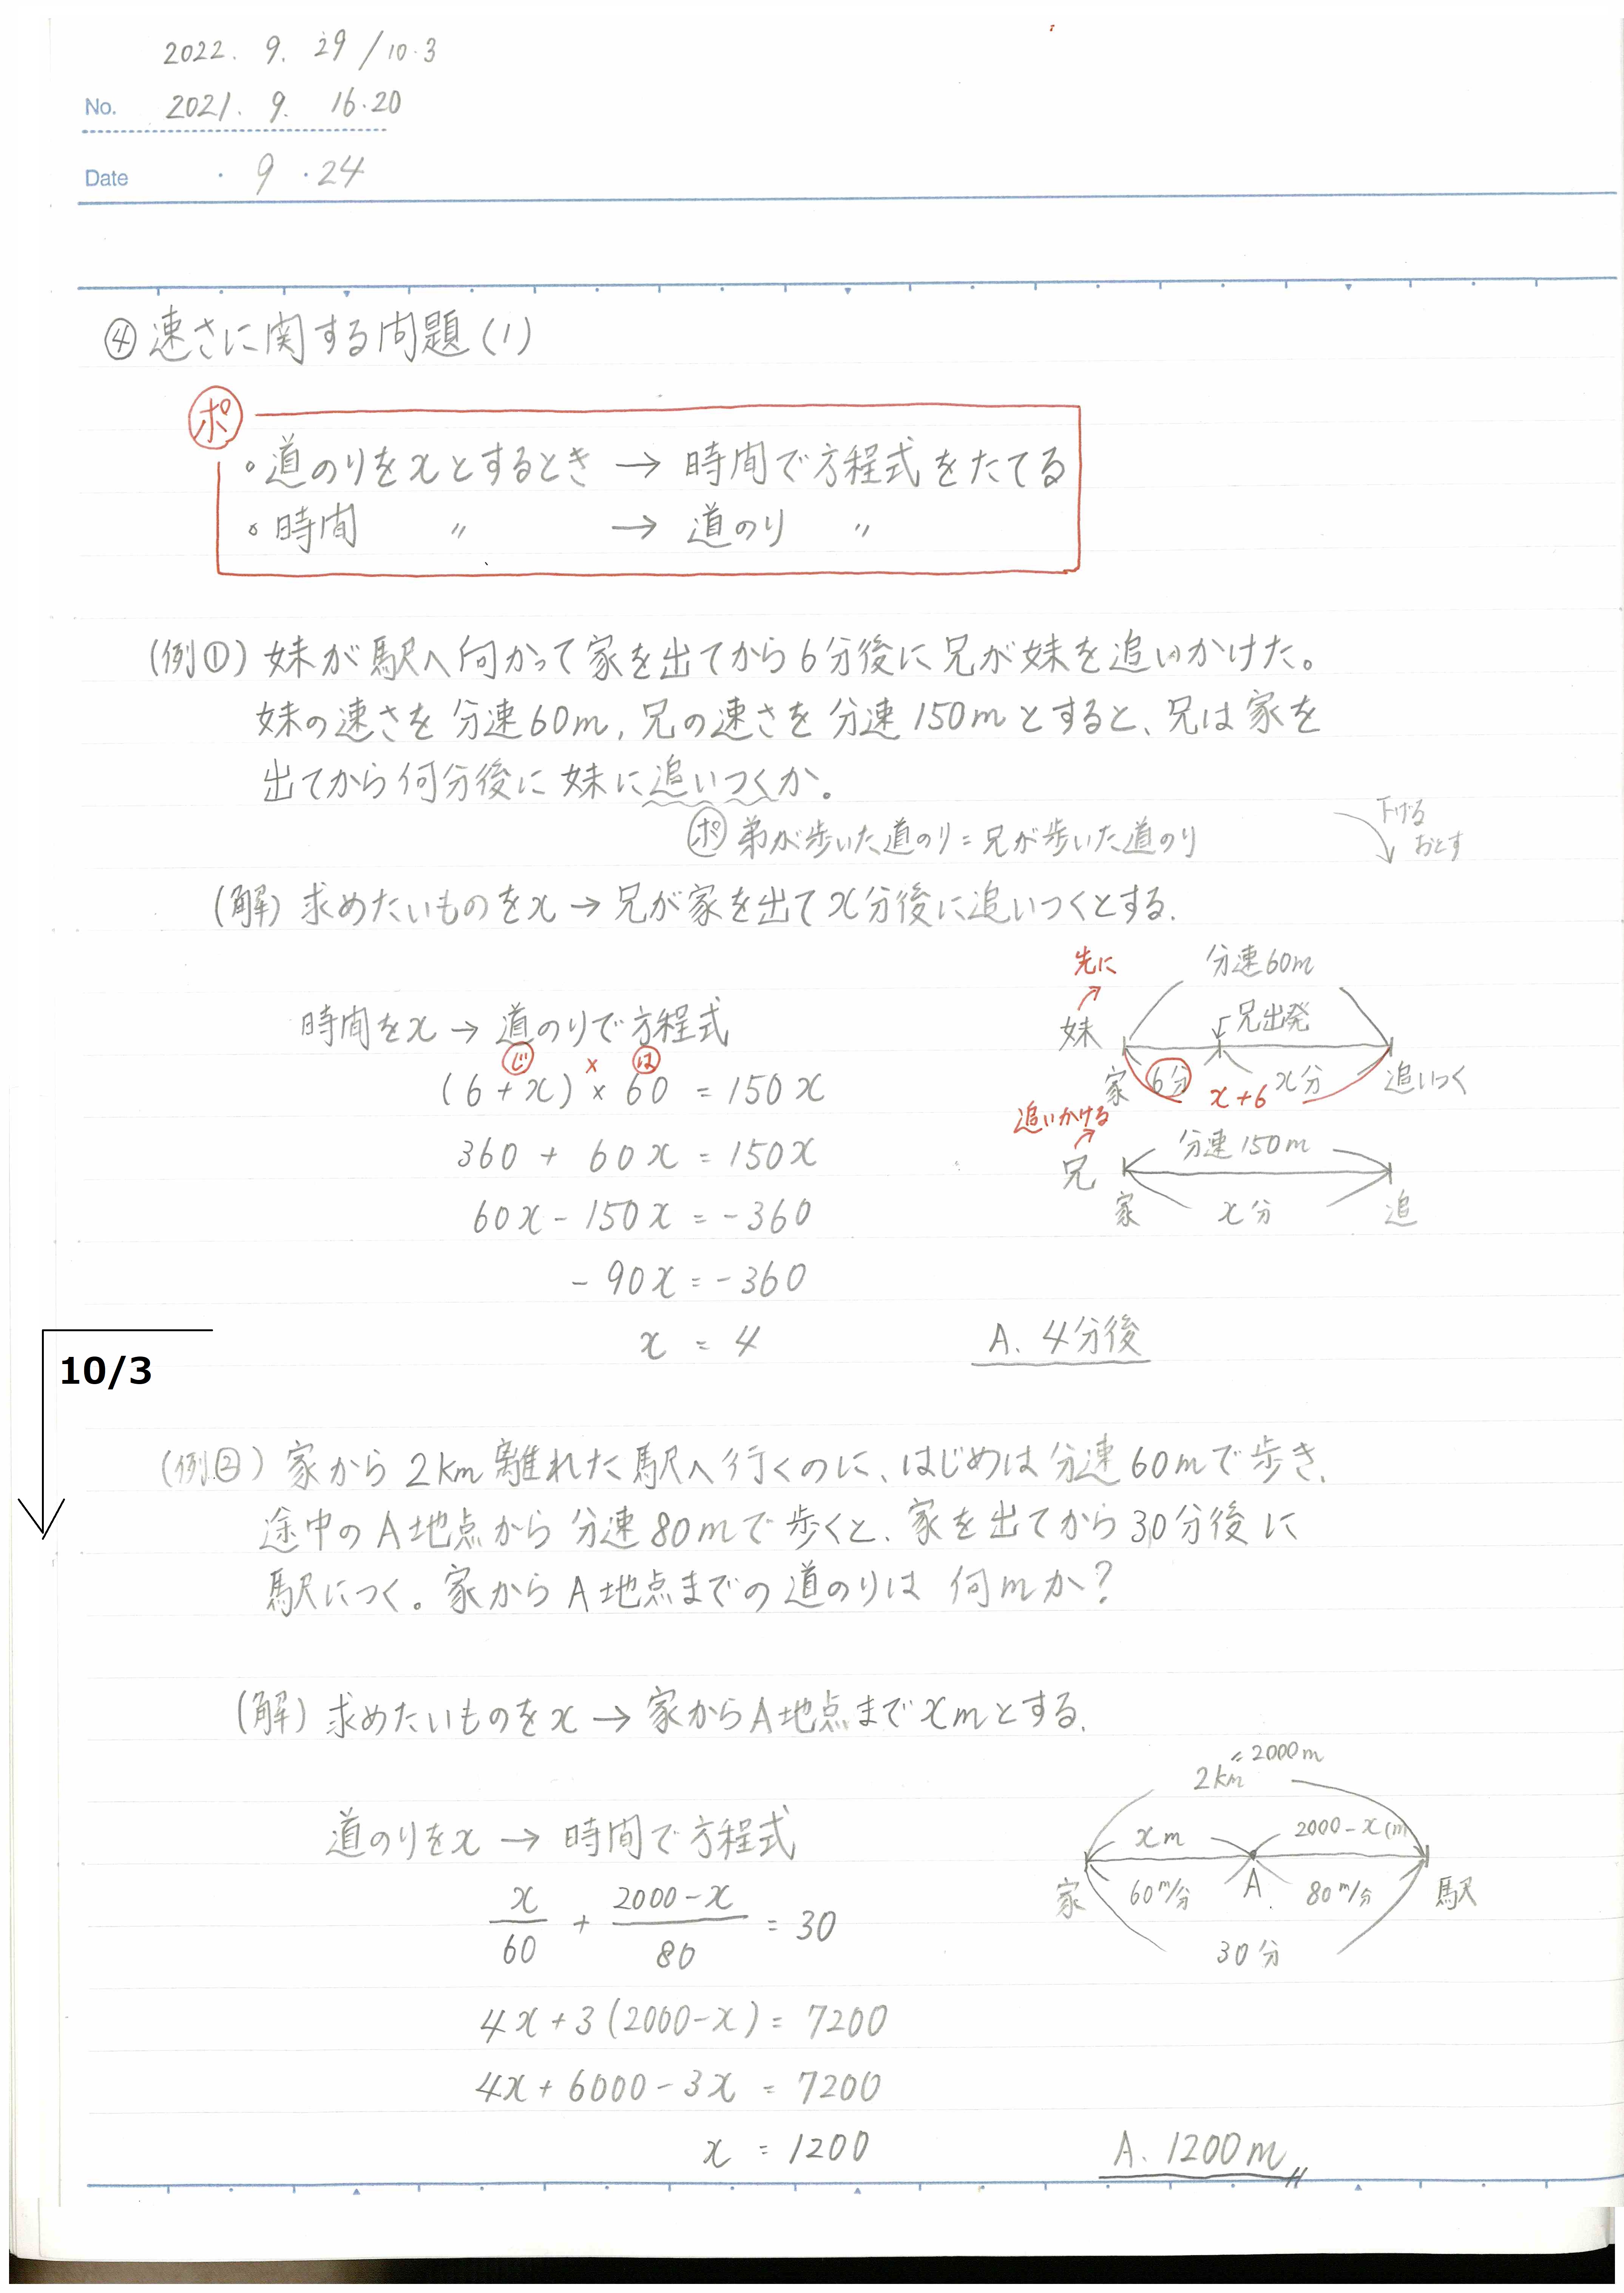 2022. 9. 29 / 10.3
No. 2021. 9. 16.20
Date ・9・24
④ 速さに関する問題(1)
ポ
。道のりをxとするとき → 時間で方程式をたてる
。時間 〃 → 道のり 〃
(例①) 妹が駅へ向かって家を出てから6分後に兄が妹を追いかけた。
妹の速さを分速60m, 兄の速さを分速150mとすると、兄は家を
出てから何分後に妹に追いつくか。
ポ 弟が歩いた道のり=兄が歩いた道のり
下げる
おとす
(解) 求めたいものをx → 兄が家を出てx分後に追いつくとする.
先に
分速60m
妹
兄出発
家 6分 x分 追いつく
x+6
追いかける
分速150m
兄
家 x分 追
時間をx → 道のりで方程式
じ × は
(6+x) × 60 = 150x
360 + 60x = 150x
60x - 150x = -360
- 90x = -360
x = 4
A. 4分後
10/3
(例②) 家から2km離れた駅へ行くのに、はじめは分速60mで歩き、
途中のA地点から分速80mで歩くと、家を出てから30分後に
駅につく。家からA地点までの道のりは何mか?
(解) 求めたいものをx → 家からA地点までxmとする.
=2000m
2km
xm 2000-x(m
家 60m/分 A 80m/分 駅
30分
道のりをx → 時間で方程式
x/60 + 2000-x/80 = 30
4x+3(2000-x) = 7200
4x+6000-3x = 7200
x = 1200
A. 1200m